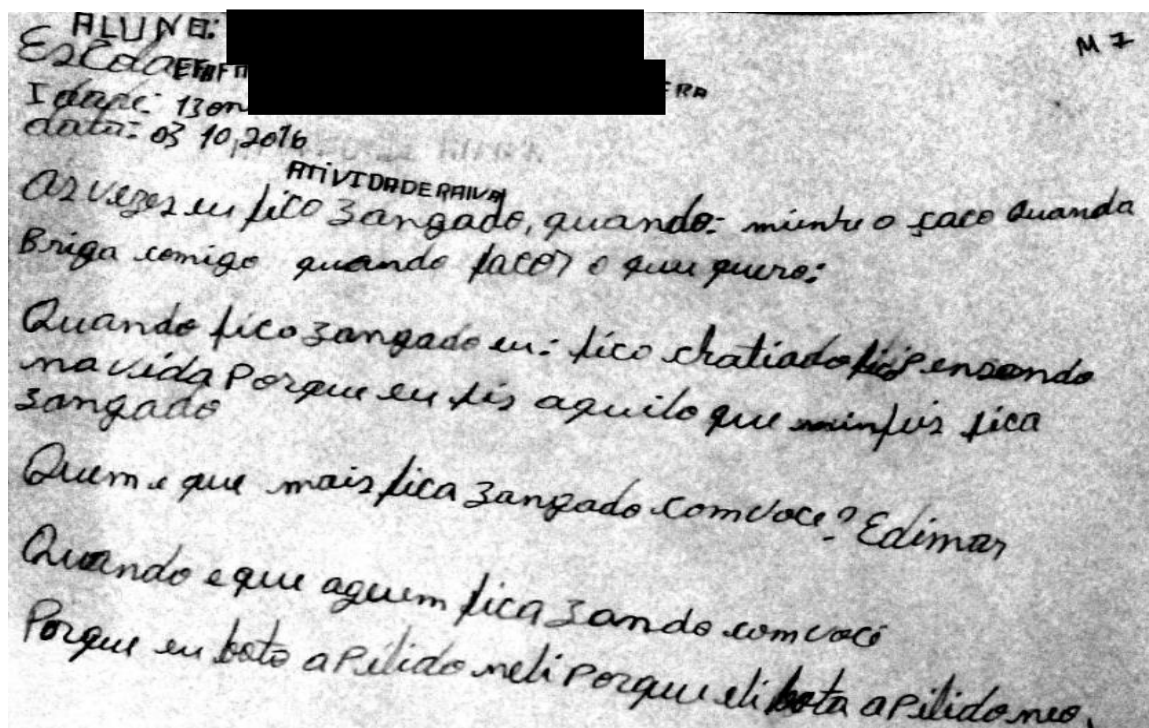 ALUNO:
M 7
Escola EFIFTI ERA
Idade: 13 an
data: 03 10, 2016
ATIVIDADE RAIVA
As vezes eu fico zangado, quando: minhe o saco Quanda
Briga comigo quando facor o que quero:
Quando fico zangado eu: fico chatiado fico Pensando
na vida Porque eu fis aquilo que minfuis fica
zangado
Quem e que mais fica zangado com voce? Edimar
Quando e que aguem fica zando com você
Porque eu boto aPilido neli Porque eli bota aPilido neo